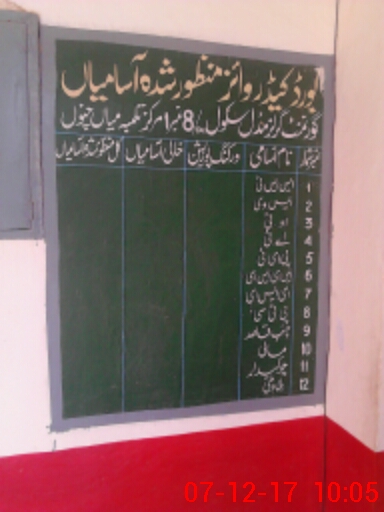 بورڈ کیڈر وائز منظور شدہ آسامیاں
گورنمنٹ گرلز مڈل سکول 8 نمبر 1 مرکز تکیہ میاں
نمبر شمار نام آسامی ورکنگ پوزیشن خالی آسامیاں کل منظور شدہ آسامیاں
1 ایس ایس ٹی
2 ایس وی
3 او ٹی
4 اے ٹی
5 پی ای ٹی
6
7
8 پی ٹی سی
9 نائب قاصد
10 مالی
11 چوکیدار
12
07-12-17 10:05